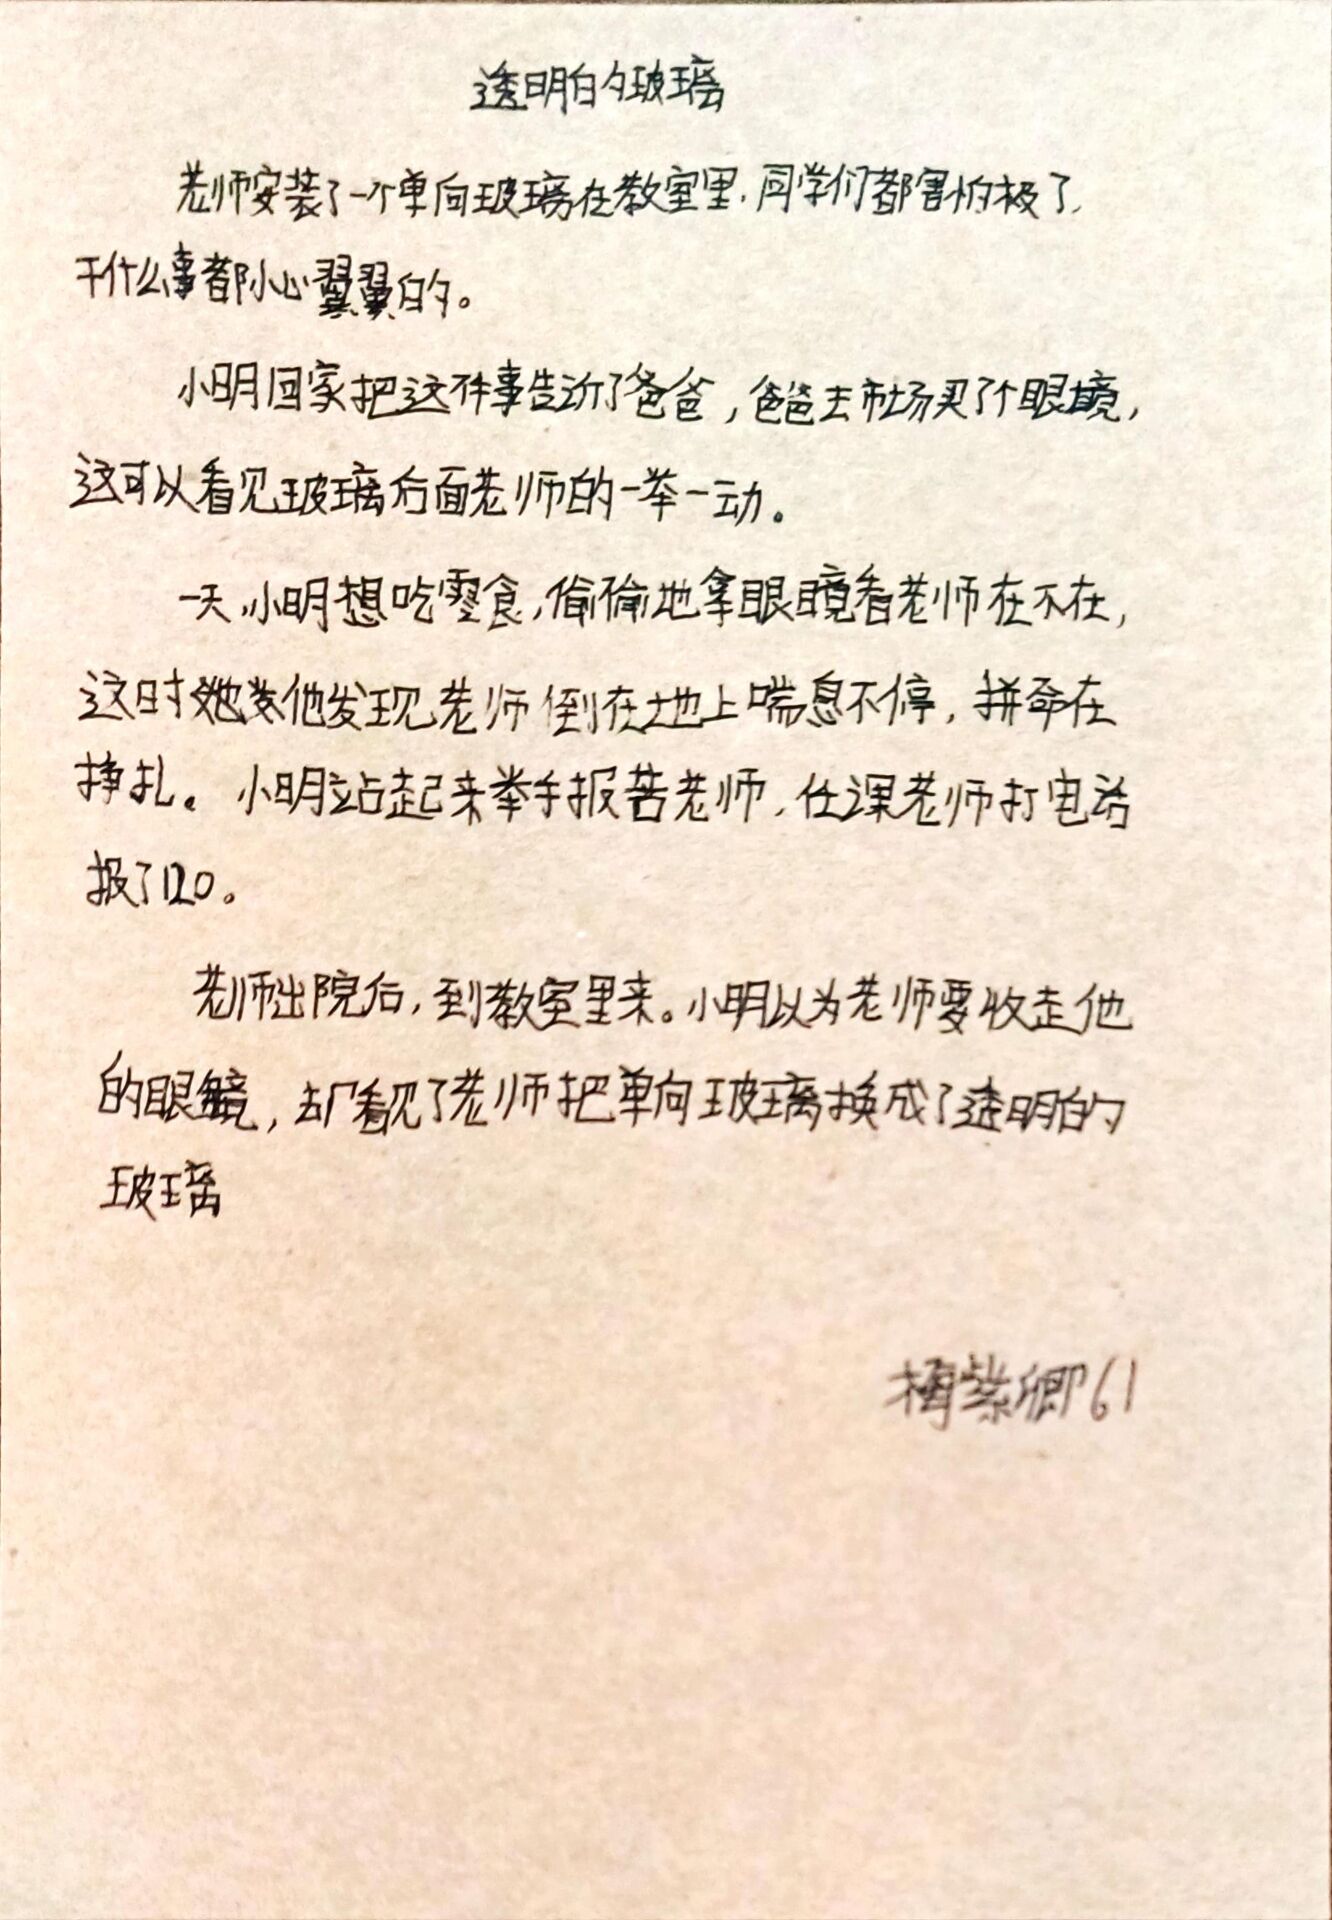 透明的玻璃
老师安装了一个单向玻璃在教室里，同学们都害怕极了，
干什么事都小心翼翼的。
小明回家把这件事告诉了爸爸，爸爸去市场买了个眼镜，
这可以看见玻璃后面老师的一举一动。
一天，小明想吃零食，偷偷地拿眼镜看老师在不在，
这时他发现老师倒在地上喘息不停，拼命在
挣扎。小明站起来举手报告老师，任课老师打电话
报了120。
老师出院后，到教室里来。小明以为老师要收走他
的眼镜，却看见了老师把单向玻璃换成了透明的
玻璃
梅紫卿61